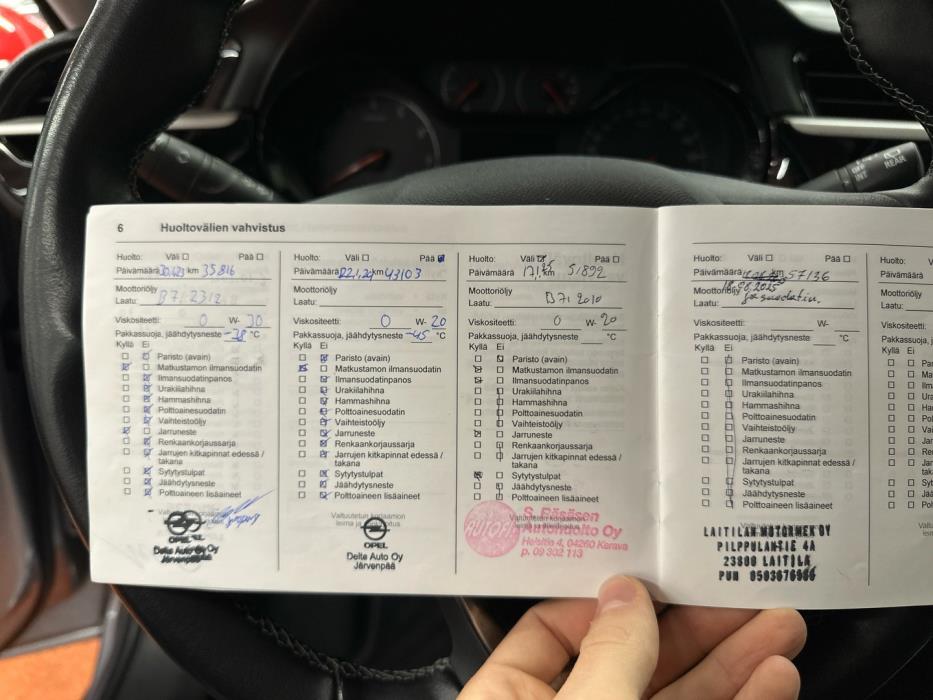 REAR
INT
6 Huoltovälien vahvistus
Huolto: Väli Pää
Päivämäärä 20,423 km 35816
Moottoriöljy
Laatu: B71 2312
Viskositeetti: 0 W- 30
Pakkassuoja, jäähdytysneste -38 °C
Kyllä Ei
Paristo (avain)
Matkustamon ilmansuodatin
Ilmansuodatinpanos
Urakiilahihna
Hammashihna
Polttoainesuodatin
Vaihteistoöljy
Jarruneste
Renkaankorjaussarja
Jarrujen kitkapinnat edessä /
takana
Sytytystulpat
Jäähdytysneste
Polttoaineen lisäaineet
OPEL
Delta Auto Oy
Järvenpää
Huolto: Väli Pää
Päivämäärä 22.1.24 km 43103
Moottoriöljy
Laatu:
Viskositeetti: 0 W- 20
Pakkassuoja, jäähdytysneste -45 °C
Kyllä Ei
Paristo (avain)
Matkustamon ilmansuodatin
Ilmansuodatinpanos
Urakiilahihna
Hammashihna
Polttoainesuodatin
Vaihteistoöljy
Jarruneste
Renkaankorjaussarja
Jarrujen kitkapinnat edessä /
takana
Sytytystulpat
Jäähdytysneste
Polttoaineen lisäaineet
Valtuutetun korjaamon
leima ja
OPEL
Delta Auto Oy
Järvenpää
Huolto: Väli Pää
Päivämäärä 17,1,25 km 51892
Moottoriöljy
Laatu: B71 2010
Viskositeetti: 0 W- 20
Pakkassuoja, jäähdytysneste °C
Kyllä Ei
Paristo (avain)
Matkustamon ilmansuodatin
Ilmansuodatinpanos
Urakiilahihna
Hammashihna
Polttoainesuodatin
Vaihteistoöljy
Jarruneste
Renkaankorjaussarja
Jarrujen kitkapinnat edessä /
takana
Sytytystulpat
Jäähdytysneste
Polttoaineen lisäaineet
AUTOFIT
S. Räsäsen
Autohuolto Oy
Helsitie 4, 04260 Kerava
p. 09 302 113
Huolto: Väli Pää
Päivämäärä km 57136
Moottoriöljy 18.08.2025
Laatu: ja suodatin.
Viskositeetti: W-
Pakkassuoja, jäähdytysneste °C
Kyllä Ei
Paristo (avain)
Matkustamon ilmansuodatin
Ilmansuodatinpanos
Urakiilahihna
Hammashihna
Polttoainesuodatin
Vaihteistoöljy
Jarruneste
Renkaankorjaussarja
Jarrujen kitkapinnat edessä /
takana
Sytytystulpat
Jäähdytysneste
Polttoaineen lisäaineet
LAITILAN MOTORMEK OY
PILPPULANTIE 4A
23800 LAITILA
PUH
Huolto: V
Päivämäärä
Moottoriöljy
Laatu:
Viskositeetti:
Pakkassuoja, j
Kyllä Ei